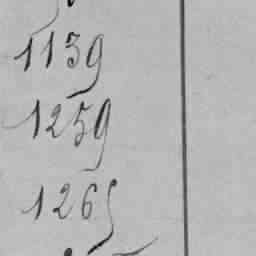 1139
1259
1265